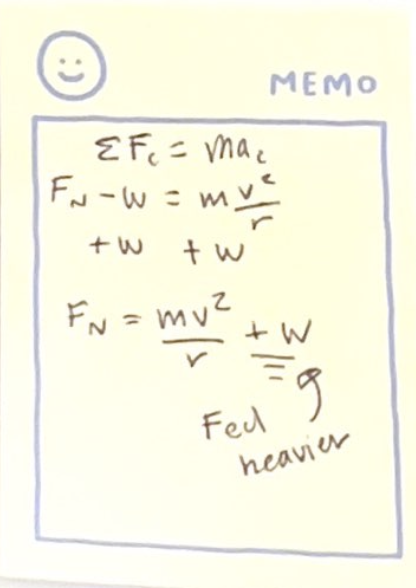 MEMO
ΣF_c = ma_c
F_N - W = m v²/r
+W +W
F_N = mv²/r + W
Feel
heavier